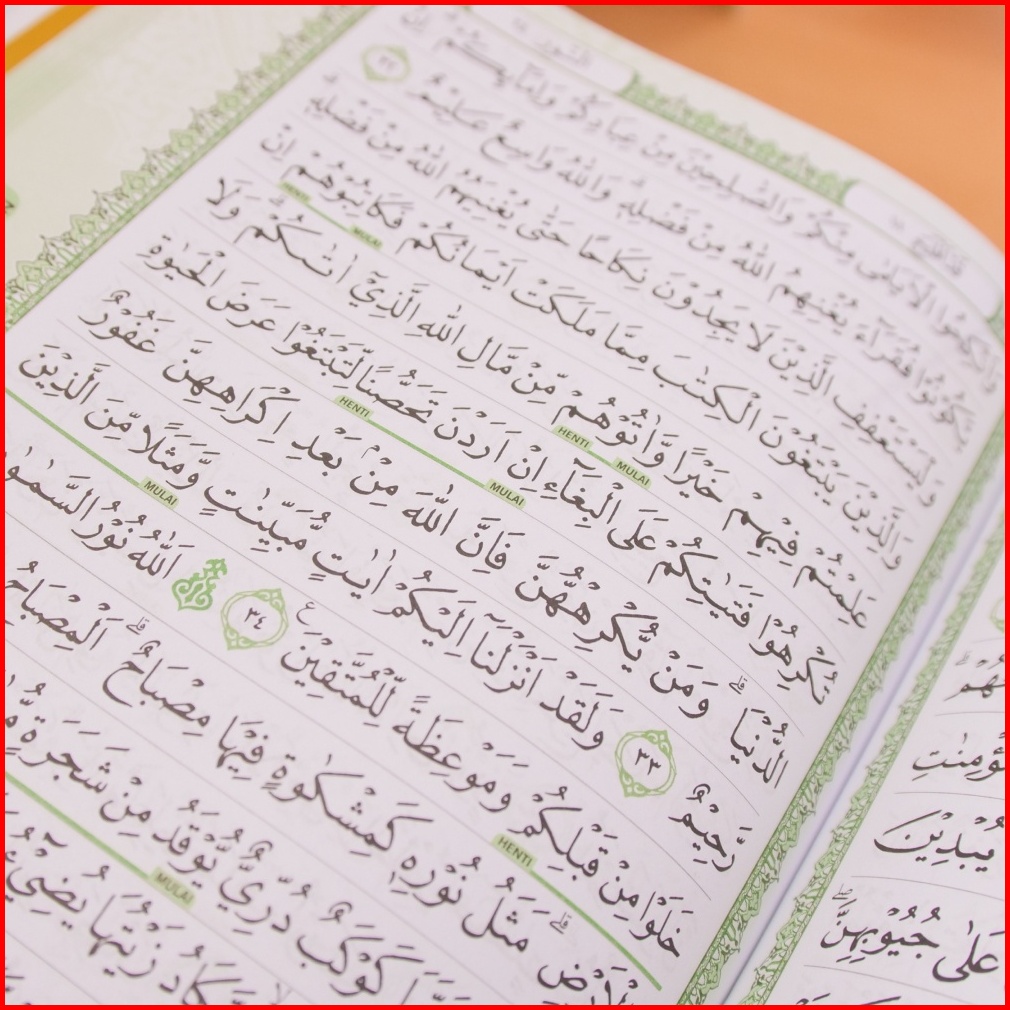 وَاَنْكِحُوا الْاَيَامٰى مِنْكُمْ وَالصّٰلِحِيْنَ مِنْ عِبَادِكُمْ وَاِمَاۤىِٕكُمْۗ اِنْ
يَّكُوْنُوْا فُقَرَاۤءَ يُغْنِهِمُ اللّٰهُ مِنْ فَضْلِهٖۗ وَاللّٰهُ وَاسِعٌ عَلِيْمٌ ٣٢
وَلْيَسْتَعْفِفِ الَّذِيْنَ لَا يَجِدُوْنَ نِكَاحًا حَتّٰى يُغْنِيَهُمُ اللّٰهُ مِنْ فَضْلِهٖۗ
وَالَّذِيْنَ يَبْتَغُوْنَ الْكِتٰبَ مِمَّا مَلَكَتْ اَيْمَانُكُمْ فَكَاتِبُوْهُمْ اِنْ
HENTI
MULAI
عَلِمْتُمْ فِيْهِمْ خَيْرًا وَّاٰتُوْهُمْ مِّنْ مَّالِ اللّٰهِ الَّذِيْٓ اٰتٰىكُمْۗ وَلَا
HENTI
MULAI
تُكْرِهُوْا فَتَيٰتِكُمْ عَلَى الْبِغَاۤءِ اِنْ اَرَدْنَ تَحَصُّنًا لِّتَبْتَغُوْا عَرَضَ الْحَيٰوةِ
HENTI
MULAI
الدُّنْيَاۗ وَمَنْ يُّكْرِهْهُّنَّ فَاِنَّ اللّٰهَ مِنْۢ بَعْدِ اِكْرَاهِهِنَّ غَفُوْرٌ
رَّحِيْمٌ ٣٣ وَلَقَدْ اَنْزَلْنَآ اِلَيْكُمْ اٰيٰتٍ مُّبَيِّنٰتٍ وَّمَثَلًا مِّنَ الَّذِيْنَ
MULAI
خَلَوْا مِنْ قَبْلِكُمْ وَمَوْعِظَةً لِّلْمُتَّقِيْنَ ࣖ ٣٤ ۞ اَللّٰهُ نُوْرُ السَّمٰوٰ
HENTI
لْاَرْضِۗ مَثَلُ نُوْرِهٖ كَمِشْكٰوةٍ فِيْهَا مِصْبَاحٌۗ اَلْمِصْبَاحُ
كَوْكَبٌ دُرِّيٌّ يُّوْقَدُ مِنْ شَجَرَةٍ
MULAI
يَكَادُ زَيْتُهَا يُضِيْۤءُ
ؤْمِنٰتِ
يُبْدِيْنَ
عَلٰى جُيُوْبِهِنَّۖ